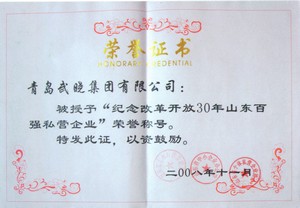 荣誉证书
HONORARY CREDENTIAL
青岛武晓集团有限公司：
被授予“纪念改革开放30年山东百
强私营企业”荣誉称号。
特发此证，以资鼓励。
二00八年十一月